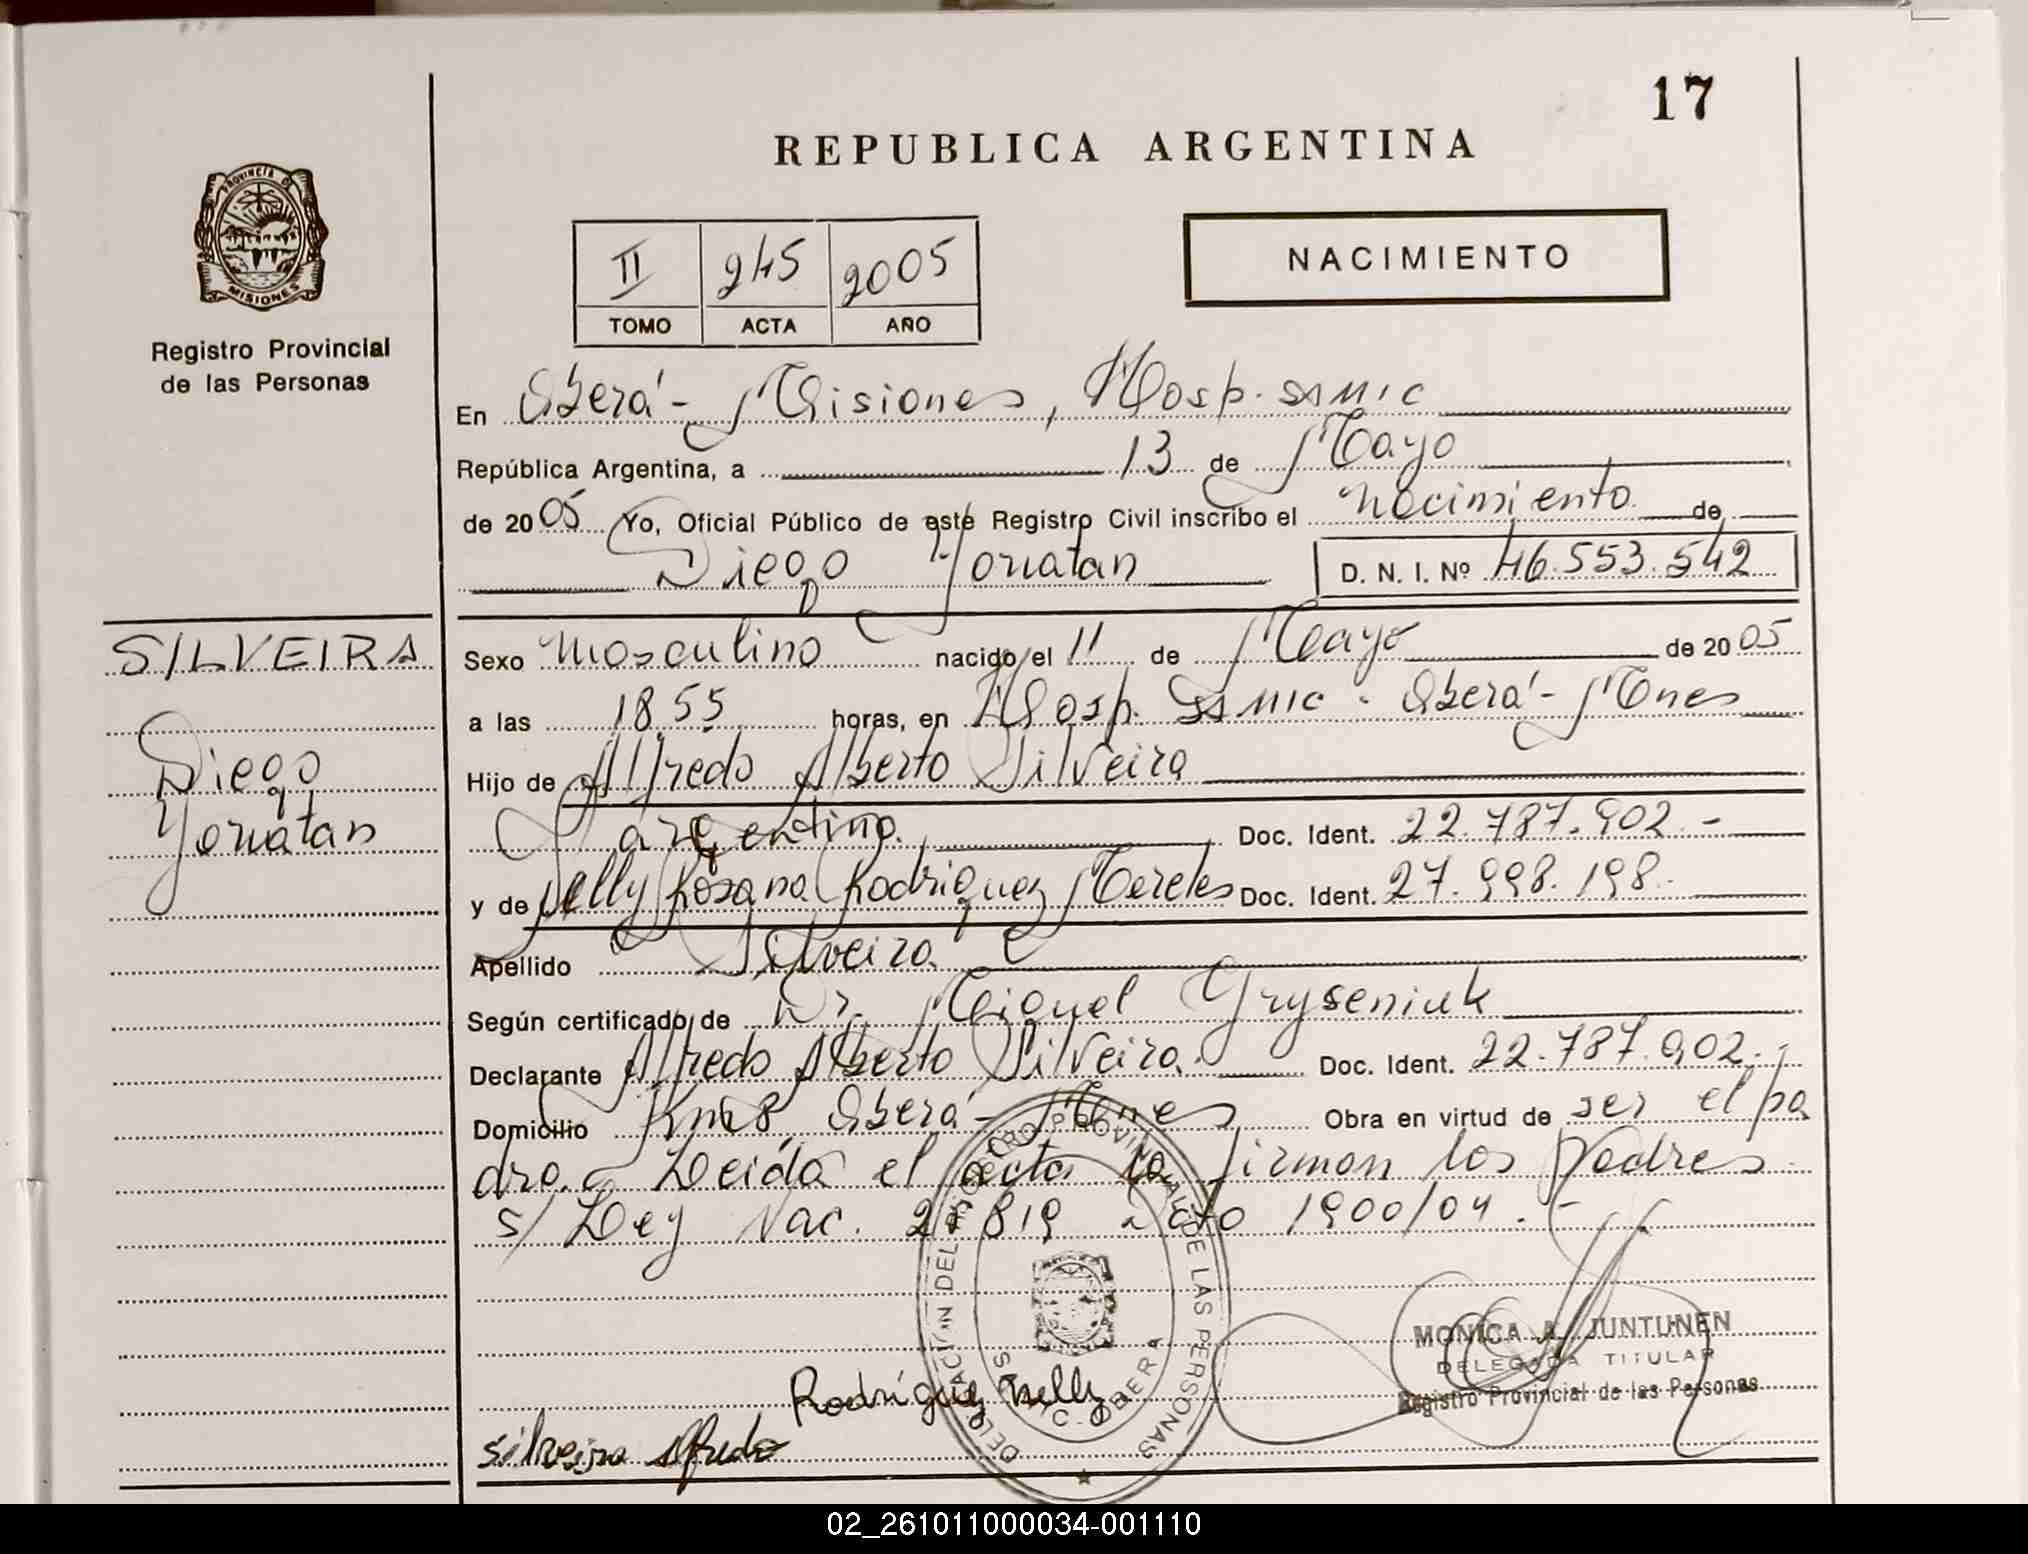 17
REPUBLICA ARGENTINA
PROVINCIA DE
MISIONES
Registro Provincial
de las Personas
II 245 2005
TOMO ACTA AÑO
NACIMIENTO
En Oberá - Misiones, Hosp. SAMIC
República Argentina, a 13 de Mayo
de 2005 Yo, Oficial Público de este Registro Civil inscribo el nacimiento de
Diego Yonatan D. N. I. Nº 46.553.542
SILVEIRA
Diego
Yonatan
Sexo Masculino nacido el 11 de Mayo de 2005
a las 18 55 horas, en Hosp. SAMIC - Oberá - Mnes
Hijo de Alfredo Alberto Silveira
argentino. Doc. Ident. 22.787.902.-
y de Nelly Rosana Rodriguez Mereles Doc. Ident. 27.998.198.-
Apellido Silveira
Según certificado de Dr. Miguel Gryseniuk
Declarante Alfredo Alberto Silveira. Doc. Ident. 22.787.902.-
Domicilio Km 8 Oberá - Mnes Obra en virtud de ser el pa
dre. Leída el acta la firman los Padres
s/ Ley Nac. 24819 Dcto 1900/04.-
DELEGACION DEL REGISTRO PROVINCIAL DE LAS PERSONAS
OBERA
MONICA A. JUNTUNEN
DELEGADA TITULAR
Registro Provincial de las Personas
Rodríguez Nelly
Silveira Alfredo
02_261011000034-001110